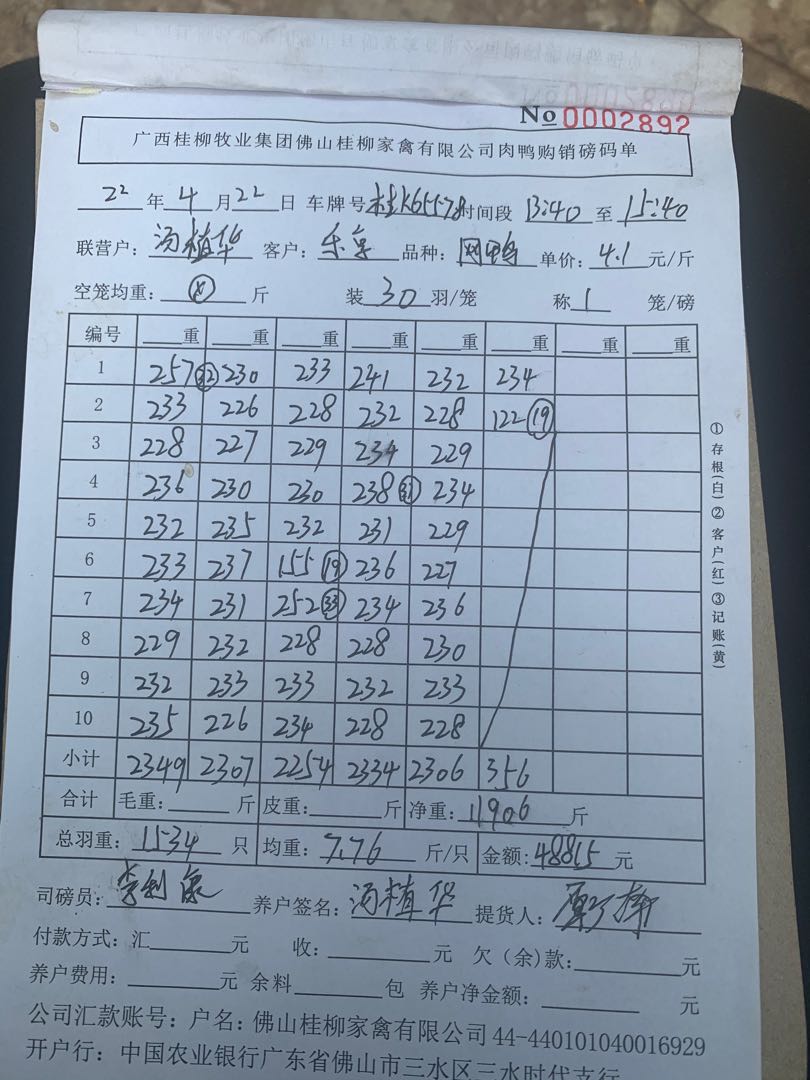 No 0002892
广西桂柳牧业集团佛山桂柳家禽有限公司肉鸭购销磅码单
22 年 4 月 22 日 车牌号 桂K65578 时间段 13:40 至 15:40
联营户: 汤植华 客户: 乐享 品种: 网鸭 单价: 4.1 元/斤
空笼均重: 斤 装 30 羽/笼 称 1 笼/磅
编号 重 重 重 重 重 重 重 重
1 257 32 230 233 241 232 234
2 233 226 228 232 228 122 19
3 228 227 229 234 229
4 236 230 230 238 31 234
5 232 235 232 231 229
6 233 237 155 19 236 227
7 234 231 252 33 234 236
8 229 232 228 228 230
9 232 233 233 232 233
10 235 226 234 228 228
小计 2349 2307 2254 2334 2306 356
合计 毛重: 斤 皮重: 斤 净重: 11906 斤
总羽重: 1534 只 均重: 7.76 斤/只 金额: 48815 元
司磅员: 养户签名: 汤植华 提货人:
付款方式: 汇 元 收: 元 欠(余)款: 元
养户费用: 元 余料 包 养户净金额: 元
公司汇款账号: 户名: 佛山桂柳家禽有限公司 44-440101040016929
开户行: 中国农业银行广东省佛山市三水区三水时代支行
①存根(白)②客户(红)③记账(黄)